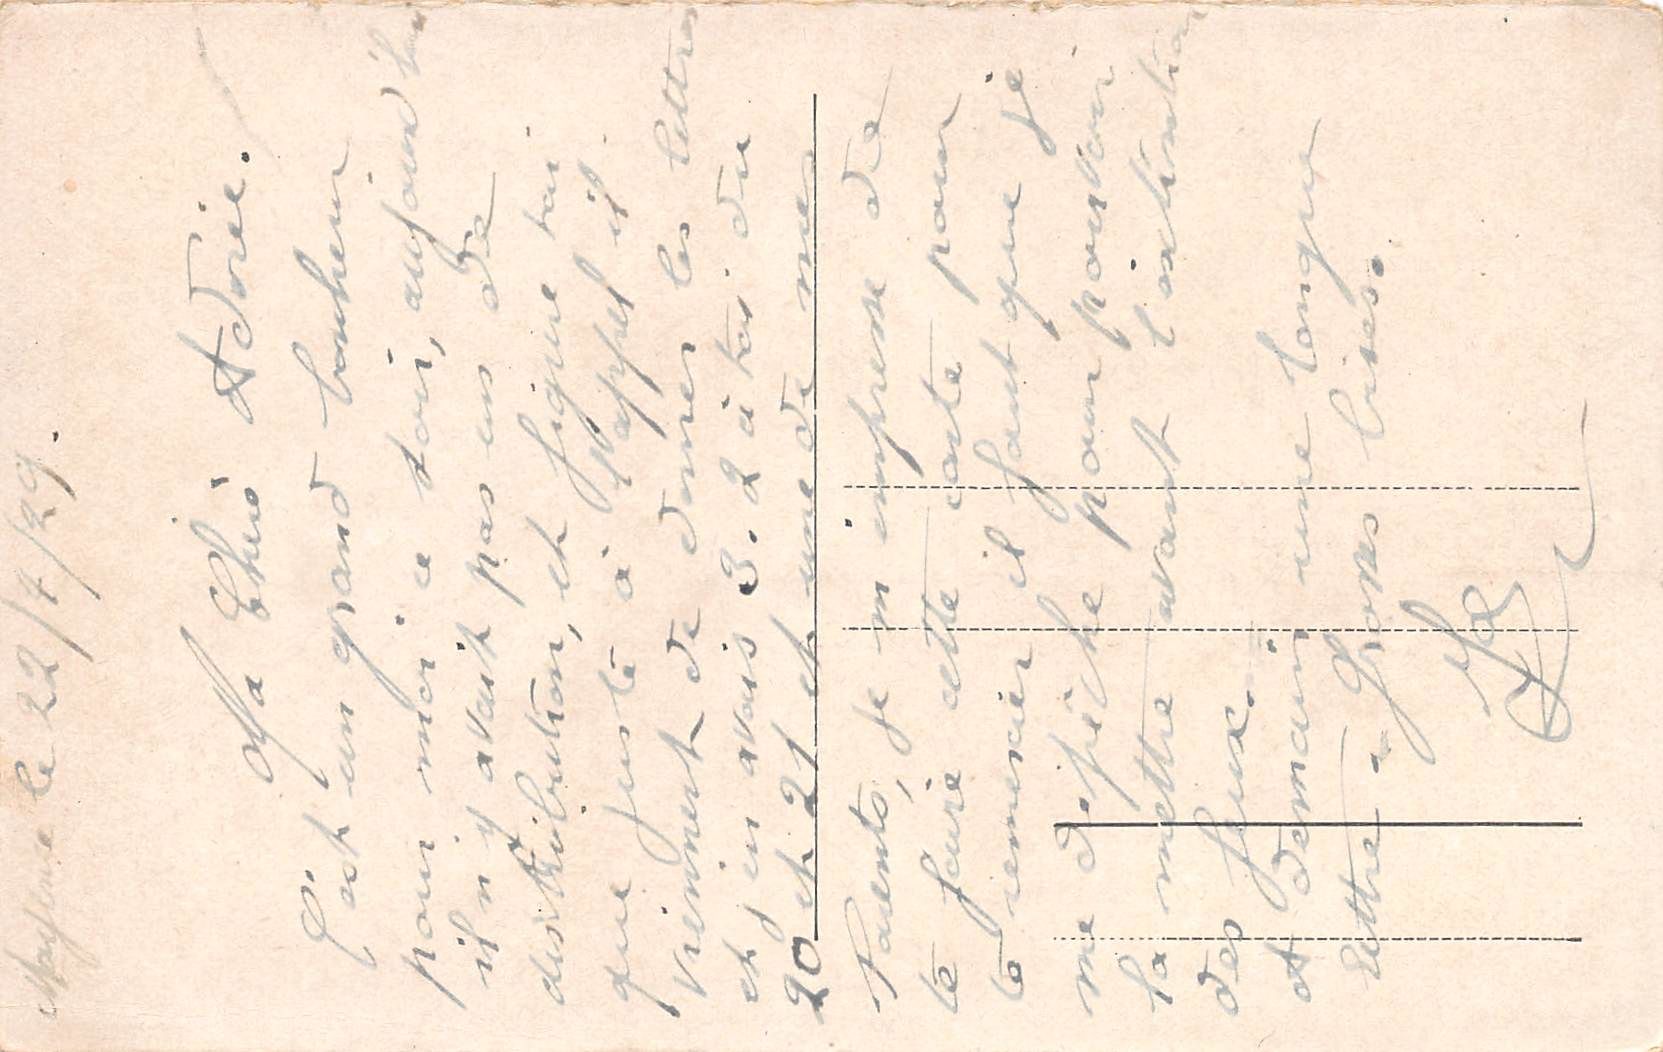 le 22/7/29.
Ma Chère Adorée.
C'est un grand bonheur
pour moi ce soir, aujourd'hui
il n'y avait pas eu de
distribution, et figure toi
que juste à l'appel il
viennent de donner les lettres
et j'en avais 3. 2 à toi du
20 et 21 et une de mes
Parents, je m'empresse de
te faire cette carte pour
te remercier il faut que je
me dépêche pour pouvoir
la mettre avant l'extinction
des feux.
A demain une longue
lettre - Gross bises.